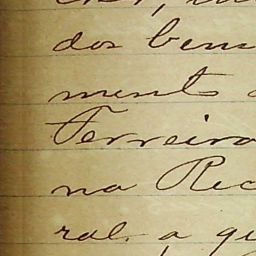 dos bens
ment
Ferreira
na Rec
ral. a qu